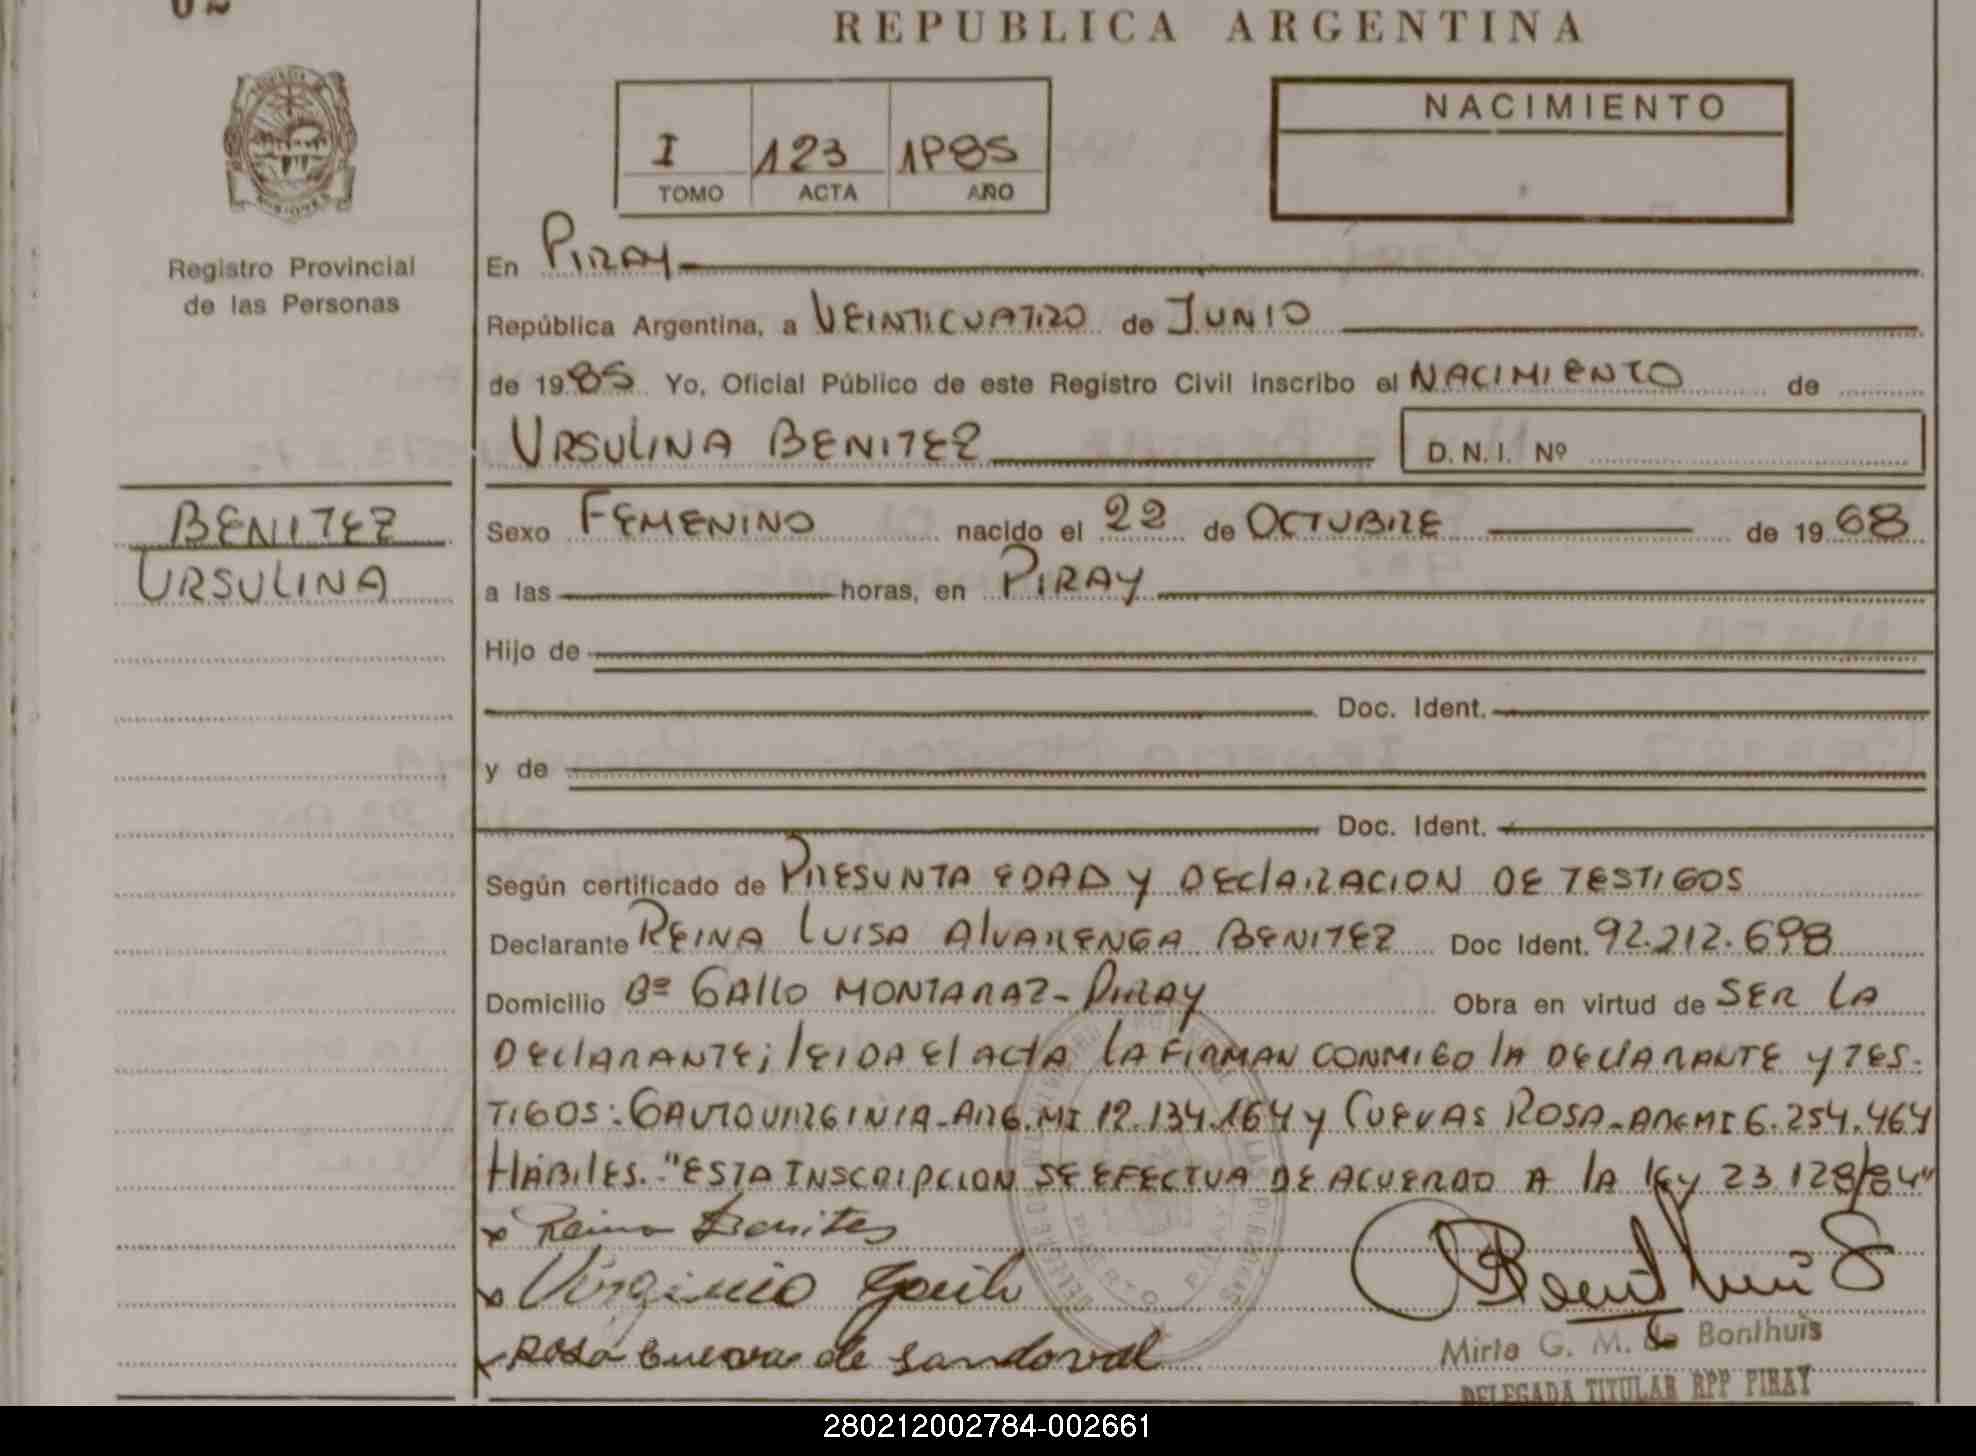 REPUBLICA ARGENTINA
I 123 1985
TOMO ACTA AÑO
NACIMIENTO
Registro Provincial
de las Personas
En PIRAY
República Argentina, a VEINTICUATRO de JUNIO
de 1985 Yo, Oficial Público de este Registro Civil inscribo el NACIMIENTO de
URSULINA BENITEZ D.N.I. Nº
BENITEZ
URSULINA
Sexo FEMENINO nacido el 22 de OCTUBRE de 1968
a las horas, en PIRAY
Hijo de
Doc. Ident.
y de
Doc. Ident.
Según certificado de PRESUNTA EDAD Y DEClARACION DE TESTIGOS
Declarante REINA LUISA AlVARENGA BENITEZ Doc Ident. 92.212.698
Domicilio Bº GAllO MONTARAZ- PIRAY Obra en virtud de SER LA
DEClARANTE; lEIDA El ACTA LA FIRMAN CONMIGO lA DEClARANTE Y TES-
TIGOS: GAUTO VIRGINIA-ARG.MI 12.134.164 y CUEVAS ROSA-ARG MI 6.254.464
HABILES.-"ESTA INSCRIPCION SE EFECTUA DE ACUERDO A lA lEy 23.128/84"
x Reina Benites
x Virginia Gauto
x Rosa Cueva de Sandoval
Mirta G. M. de Bonthuis
DELEGADA TITULAR RPP PIRAY
280212002784-002661